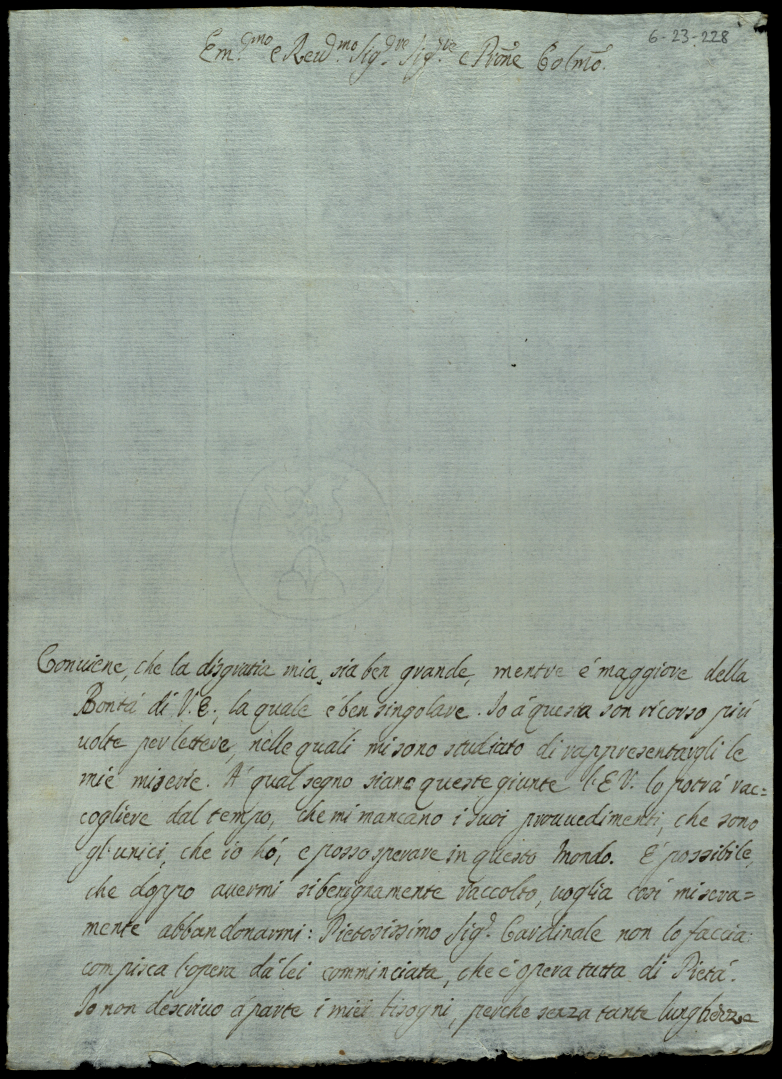 6-23-228
Em.mo e Rev.mo Sig.re Sig.re e Prōne Colmō.
Conuiene, che la disgratia mia, sia ben grande, mentre è maggiore della
Bontà di V. E., la quale è ben singolare. Io à questa son ricorso più
uolte per lettere, nelle quali mi sono studiato di rappresentargli le
mie miserie. A' qual segno siano queste giunte l'E V. lo potrà rac=
cogliere dal tempo, che mi mancano i suoi prouuedimenti, che sono
gl'unici, che io hò, e posso sperare in questo Mondo. E' possibile,
che doppo auermi sì benignamente raccolto, uoglia così misera=
mente abbandonarmi: Pietosissimo Sig.r Cardinale non lo faccia:
compisca l'opera dà lei comminciata, che è opera tutta di Pietà.
Io non descriuo à parte i miei bisogni, perche senza tante lunghezze